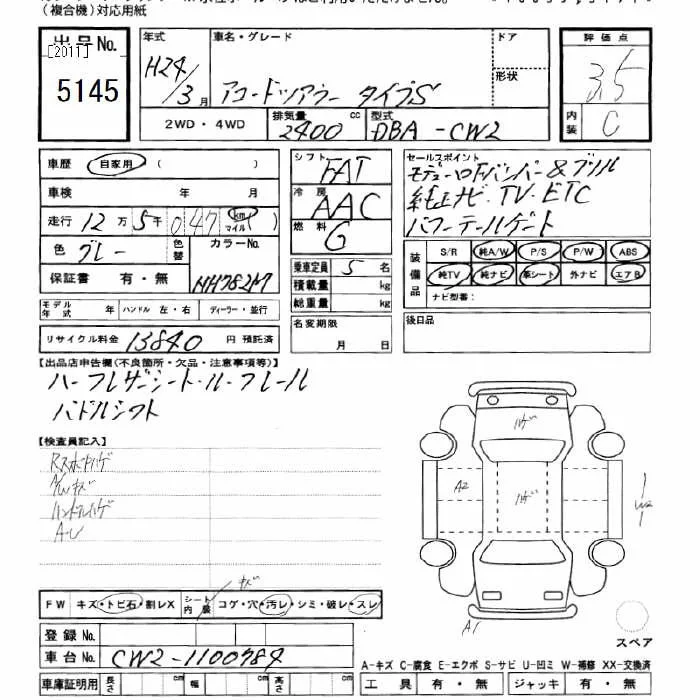 （複合機）対応用紙
出品No.
[2011]
5145
年式
H24/3月
車名・グレード
アコードツアラー タイプS
ドア
形状
2WD・4WD
排気量
2400 cc
型式
DBA-CW2
評価点
3.5
内装
C
車歴 自家用 ( )
車検 年 月
走行 12万5千047 km マイル
色 グレー 色替 カラーNo.
保証書 有・無 NH782M
モデル年式 年 ハンドル 左・右 ディーラー・並行
リサイクル料金 13840 円 預託済
シフト FAT
冷房 AAC
燃料 G
乗車定員 5 名
積載量 kg
総重量 kg
名変期限
月 日
セールスポイント
モデューロFバンパー&グリル
純正ナビ・TV・ETC
パワーテールゲート
装備品
S/R 純A/W P/S P/W ABS
純TV 純ナビ 革シート 外ナビ エアB
ナビ型番：
後日品
【出品店申告欄(不良箇所・欠品・注意事項等)】
ハーフレザーシート・ルーフレール
パドルシフト
【検査員記入】
A/Wキズ
ハンドルハゲ
FW キズ・トビ石・割レX シート内装 コゲ・穴・汚レ・シミ・破レ・スレ
登録No.
車台No. CW2-1100784
車庫証明用 長さ cm 幅 cm 高さ cm
ハゲ
A2
ハゲ
W2
A1
スペア
A-キズ C-腐食 E-エクボ S-サビ U-凹ミ W-補修 XX-交換済
工具 有・無 ジャッキ 有・無